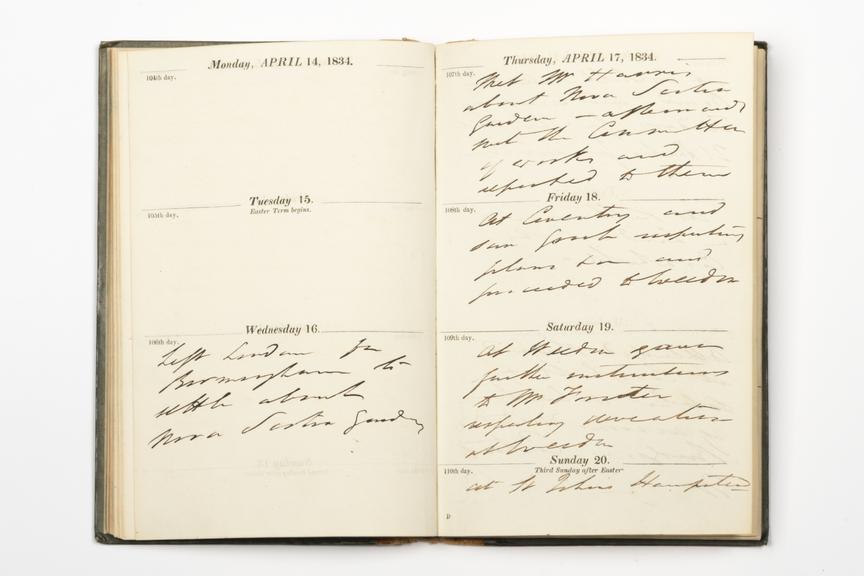 Monday, APRIL 14, 1834.
104th day.
Tuesday 15.
Easter Term begins.
105th day.
Wednesday 16.
106th day.
Left London for
Birmingham to
settle about
Nova Scotia Gardens
Thursday, APRIL 17, 1834.
107th day.
Met Mr Harris
about Nova Scotia
Garden - afterwards
met the Committee
of works and
reported to them
Friday 18.
108th day.
At Coventry and
saw respecting
plans and
proceeded to Weedon
Saturday 19.
109th day.
At Weedon gave
further instructions
to Mr Forster
respecting deviation
at Weedon
Sunday 20.
Third Sunday after Easter
110th day.
at St Johns Hampstead
D